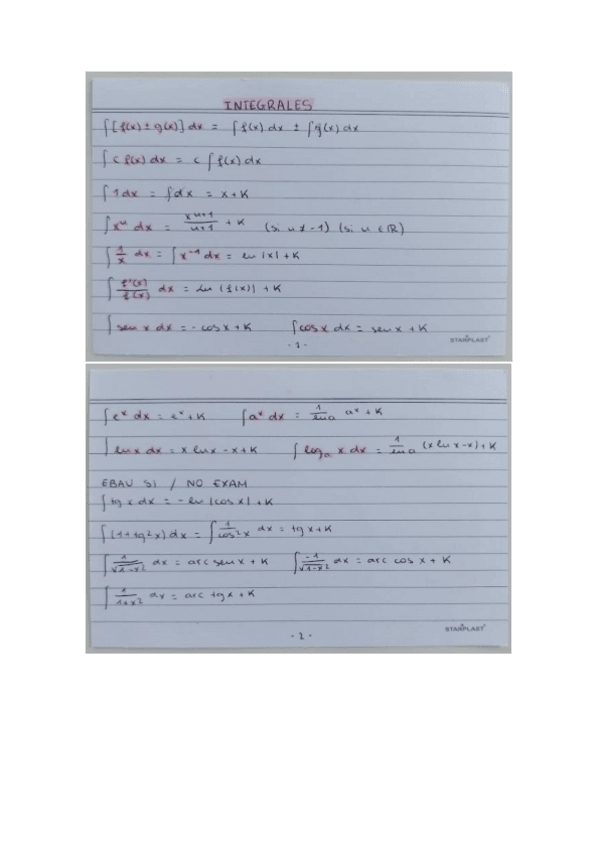 INTEGRALES
∫[f(x) ± g(x)] dx = ∫f(x) dx ± ∫g(x) dx
∫c f(x) dx = c ∫f(x) dx
∫1 dx = ∫dx = x + K
∫xⁿ dx = xⁿ⁺¹/n+1 + K (si n ≠ -1) (si n ∈ ℝ)
∫1/x dx = ∫x⁻¹ dx = ln |x| + K
∫f'(x)/f(x) dx = ln |f(x)| + K
∫sen x dx = - cos x + K ∫cos x dx = sen x + K
- 1 -
STARPLAST
∫eˣ dx = eˣ + K ∫aˣ dx = 1/ln a aˣ + K
∫ln x dx = x ln x - x + K ∫logₐ x dx = 1/ln a (x ln x - x) + K
EBAU SI / NO EXAM
∫tg x dx = - ln |cos x| + K
∫(1+tg²x) dx = ∫1/cos²x dx = tg x + K
∫1/√1-x² dx = arc sen x + K ∫-1/√1-x² dx = arc cos x + K
∫1/1+x² dx = arc tg x + K
- 2 -
STARPLAST